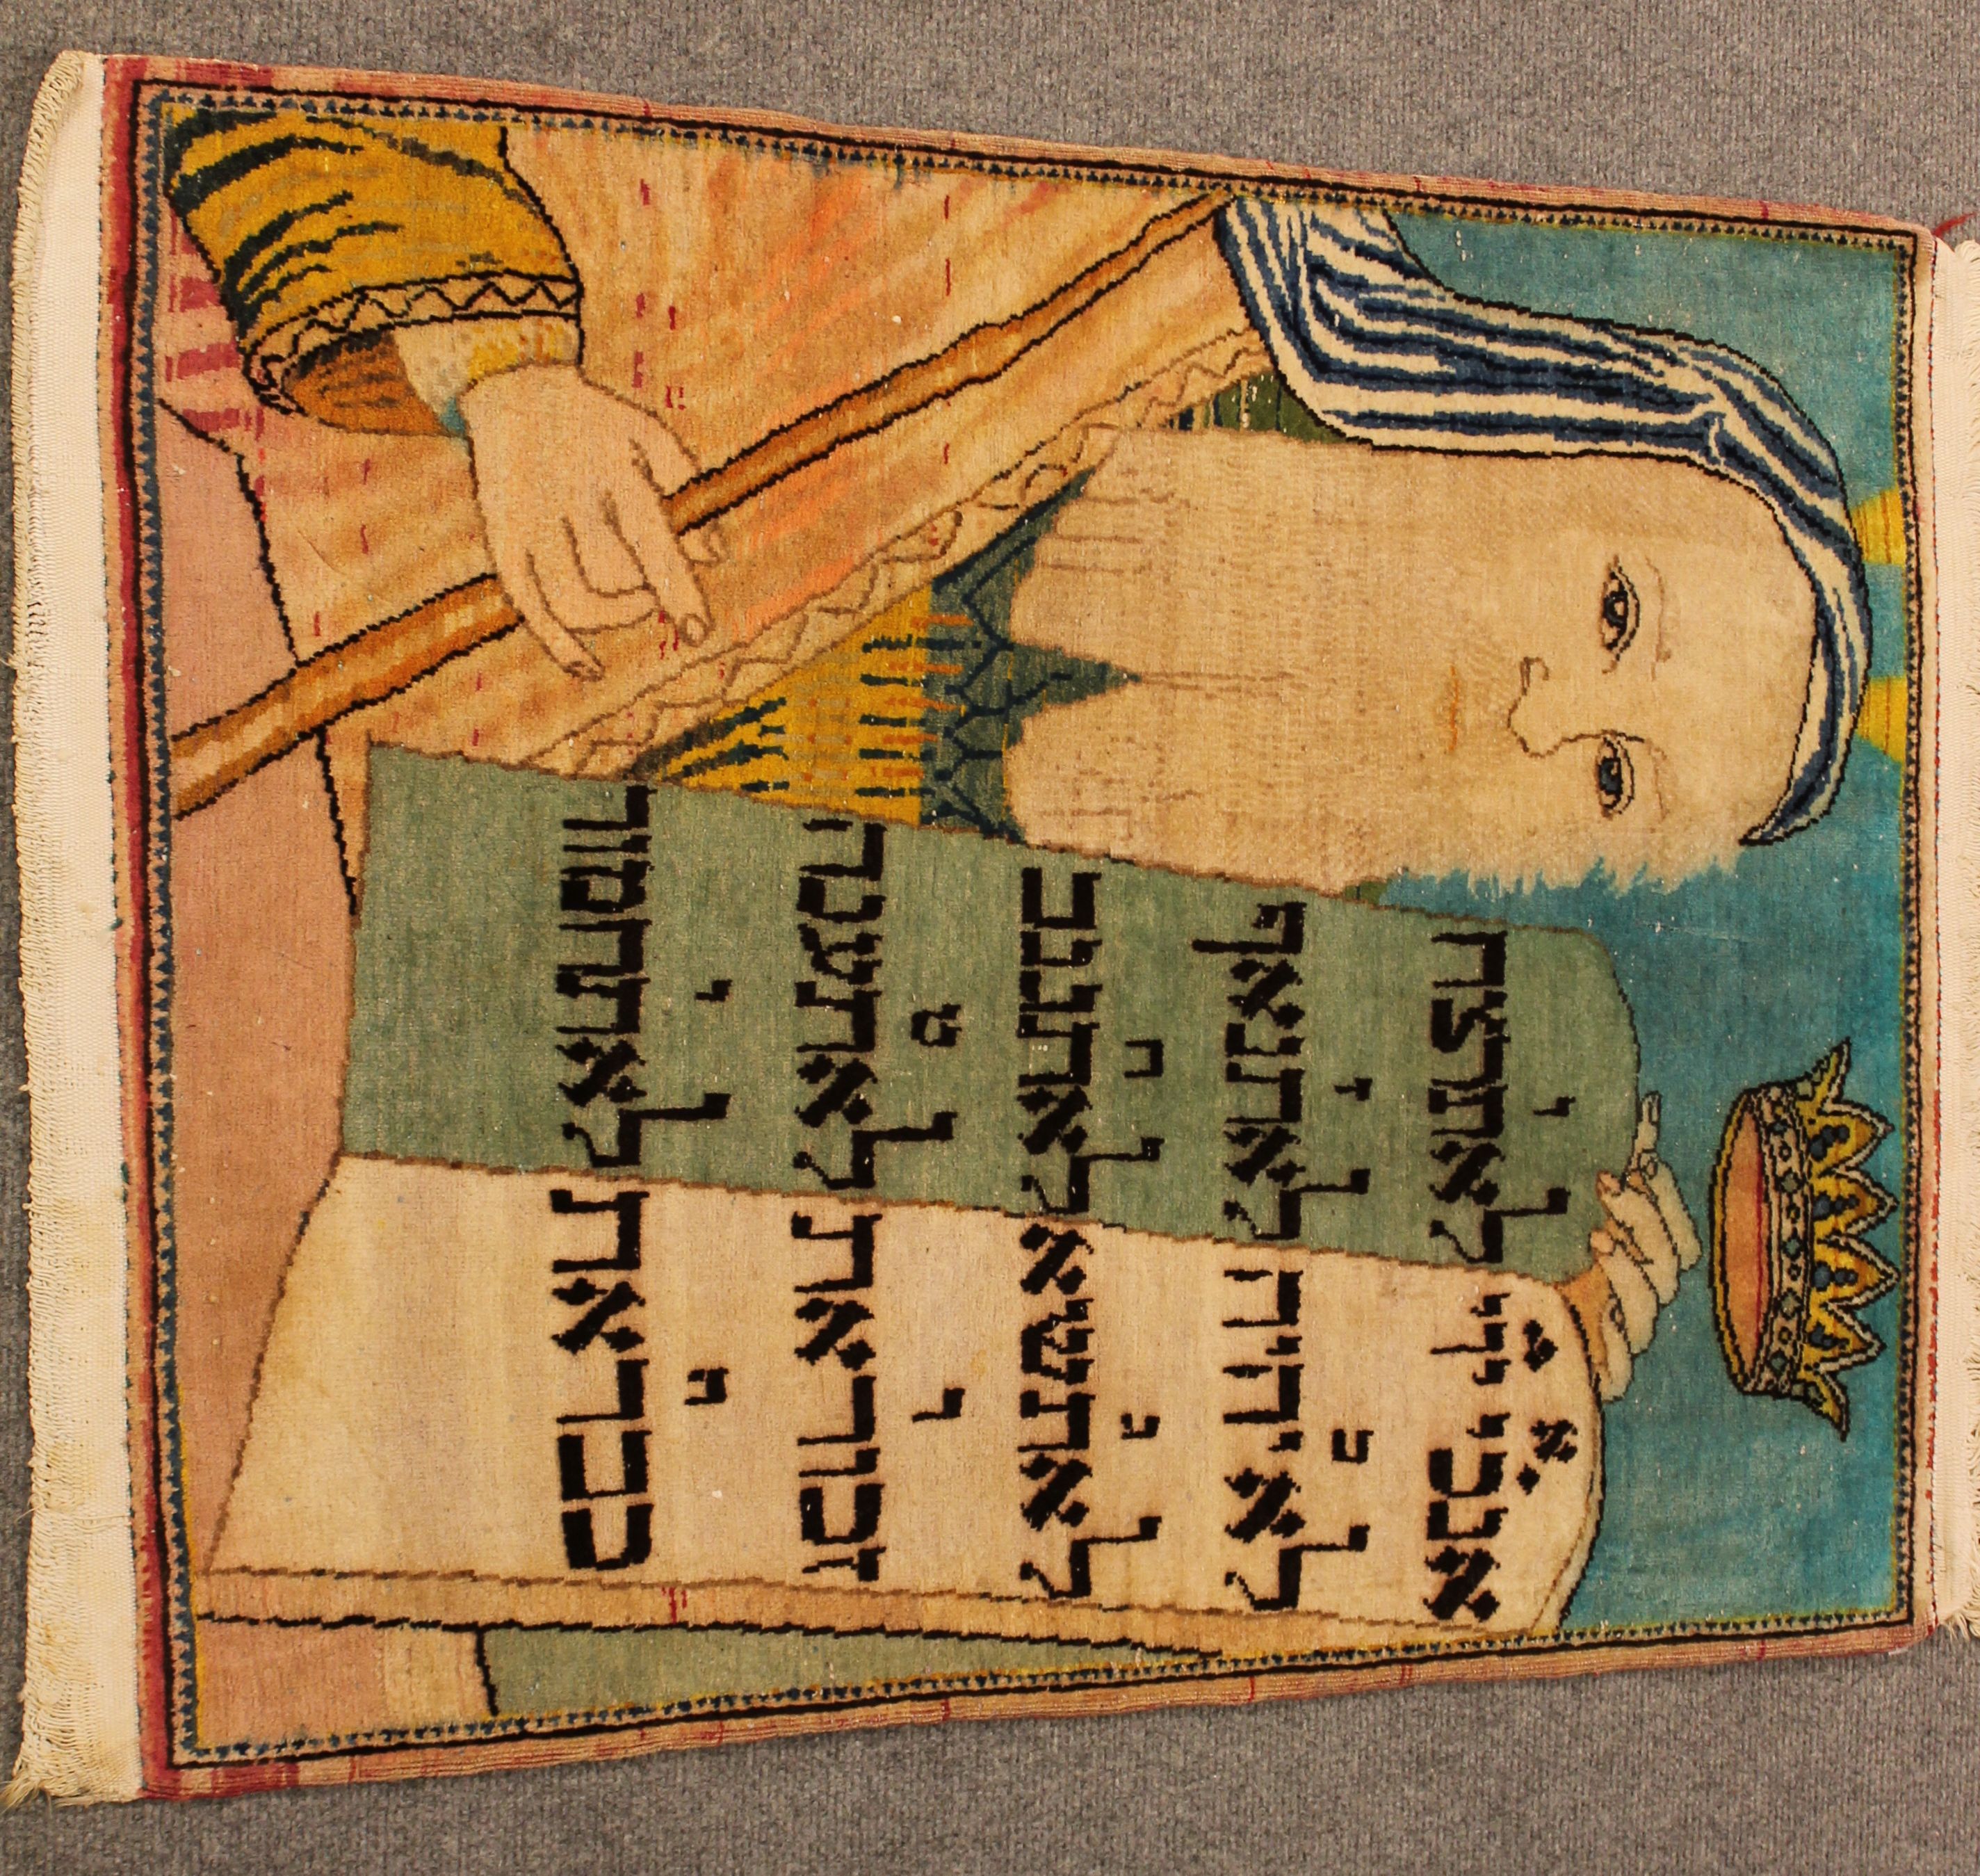 א
אנכי ייי
ב
לא יהיה
ג
לא תשיא
ד
זכור את
ה
כבד את
ו
לא תרצח
ז
לא תנאף
ח
לא תגנב
ט
לא תענה
י
לא תחמוד